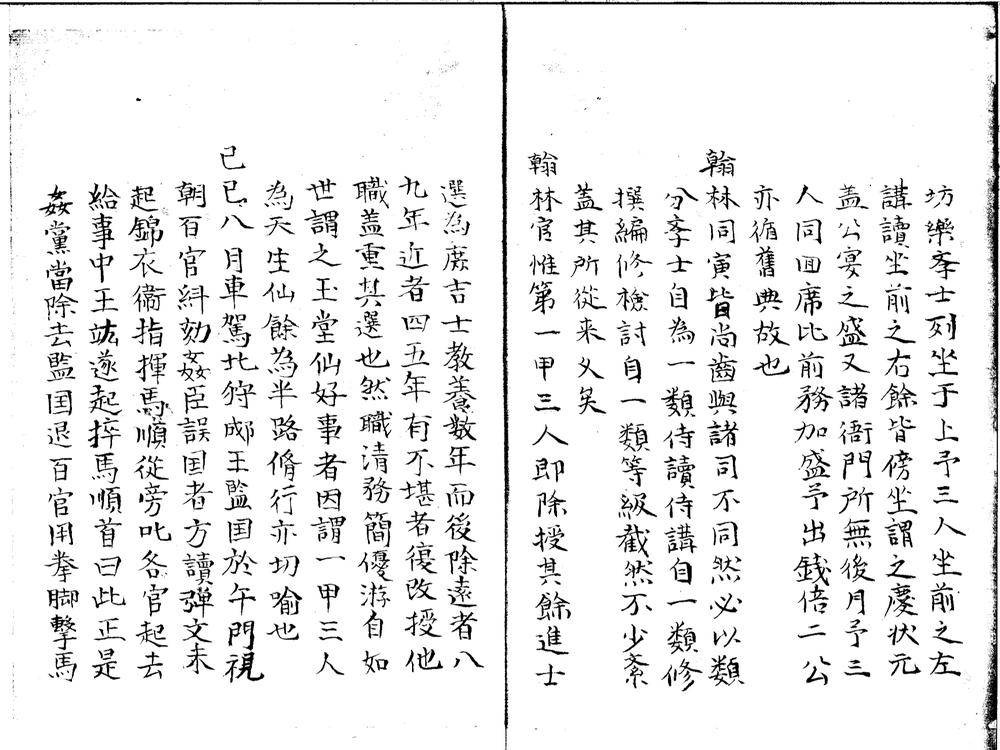 坊樂李士列坐于上予三人坐前之左
講讀坐前之右餘皆傍坐謂之慶状元
盖公宴之盛又諸衙門所無後月予三
人同回席比前務加盛予出錢倍二公
亦循舊典故也
翰林同寅皆尚齒與諸司不同然必以類
分李士自為一類侍讀侍講自一類修
撰編修檢討自一類等級截然不少紊
盖其所從来乆矣
翰林官惟第一甲三人即除授其餘進士
選為庶吉士教養数年而後除遠者八
九年近者四五年有不堪者復改授他
職盖重其選也然職清務簡優游自如
世謂之玉堂仙好事者因謂一甲三人
為天生仙餘為半路脩行亦切喻也
己巳八月車駕北狩郕王監国於午門視
朝百官糾劾姦臣誤国者方讀弹文未
起錦衣衞指揮馬順從旁叱各官起去
給事中王竑遂起捽馬順首曰此正是
姦黨當除去監国退百官用拳脚撃馬